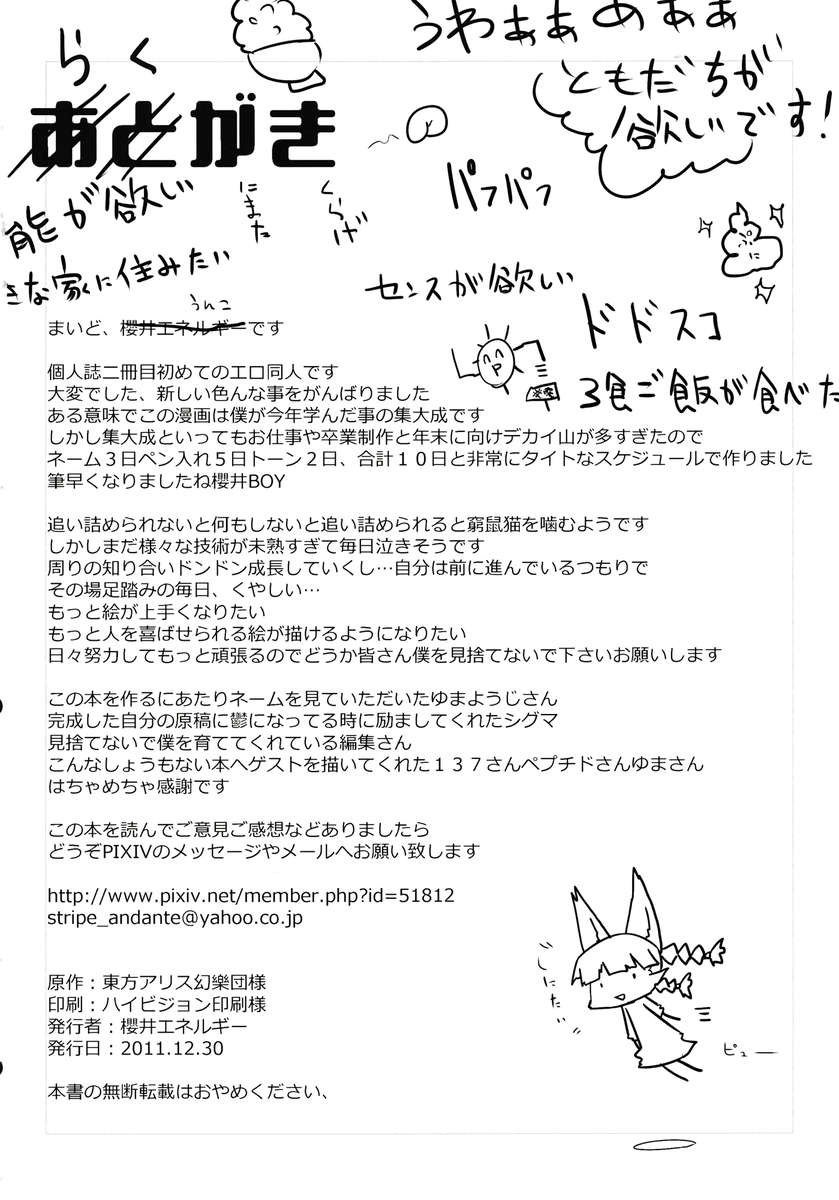 うわぁぁめぁぁ
ともだちが
欲しいです!
らく
あとがき
パフパフ
能が欲しい
にまた
くらげ
きな家に住みたい
センスが欲しい
ドドスコ
3食ご飯が食べた
うんこ
まいど、櫻井エネルギーです
個人誌二冊目初めてのエロ同人です
大変でした、新しい色んな事をがんばりました
ある意味でこの漫画は僕が今年学んだ事の集大成です
しかし集大成といってもお仕事や卒業制作と年末に向けデカイ山が多すぎたので
ネーム3日ペン入れ5日トーン2日、合計10日と非常にタイトなスケジュールで作りました
筆早くなりましたね櫻井BOY
追い詰められないと何もしないと追い詰められると窮鼠猫を噛むようです
しかしまだ様々な技術が未熟すぎて毎日泣きそうです
周りの知り合いドンドン成長していくし…自分は前に進んでいるつもりで
その場足踏みの毎日、くやしい…
もっと絵が上手くなりたい
もっと人を喜ばせられる絵が描けるようになりたい
日々努力してもっと頑張るのでどうか皆さん僕を見捨てないで下さいお願いします
この本を作るにあたりネームを見ていただいたゆまようじさん
完成した自分の原稿に鬱になってる時に励ましてくれたシグマ
見捨てないで僕を育ててくれている編集さん
こんなしょうもない本へゲストを描いてくれた137さんペプチドさんゆまさん
はちゃめちゃ感謝です
この本を読んでご意見ご感想などありましたら
どうぞPIXIVのメッセージやメールへお願い致します
http://www.pixiv.net/member.php?id=51812
stripe_andante@yahoo.co.jp
原作:東方アリス幻樂団様
印刷:ハイビジョン印刷様
発行者:櫻井エネルギー
発行日:2011.12.30
本書の無断転載はおやめください、
しにたい
ピュー